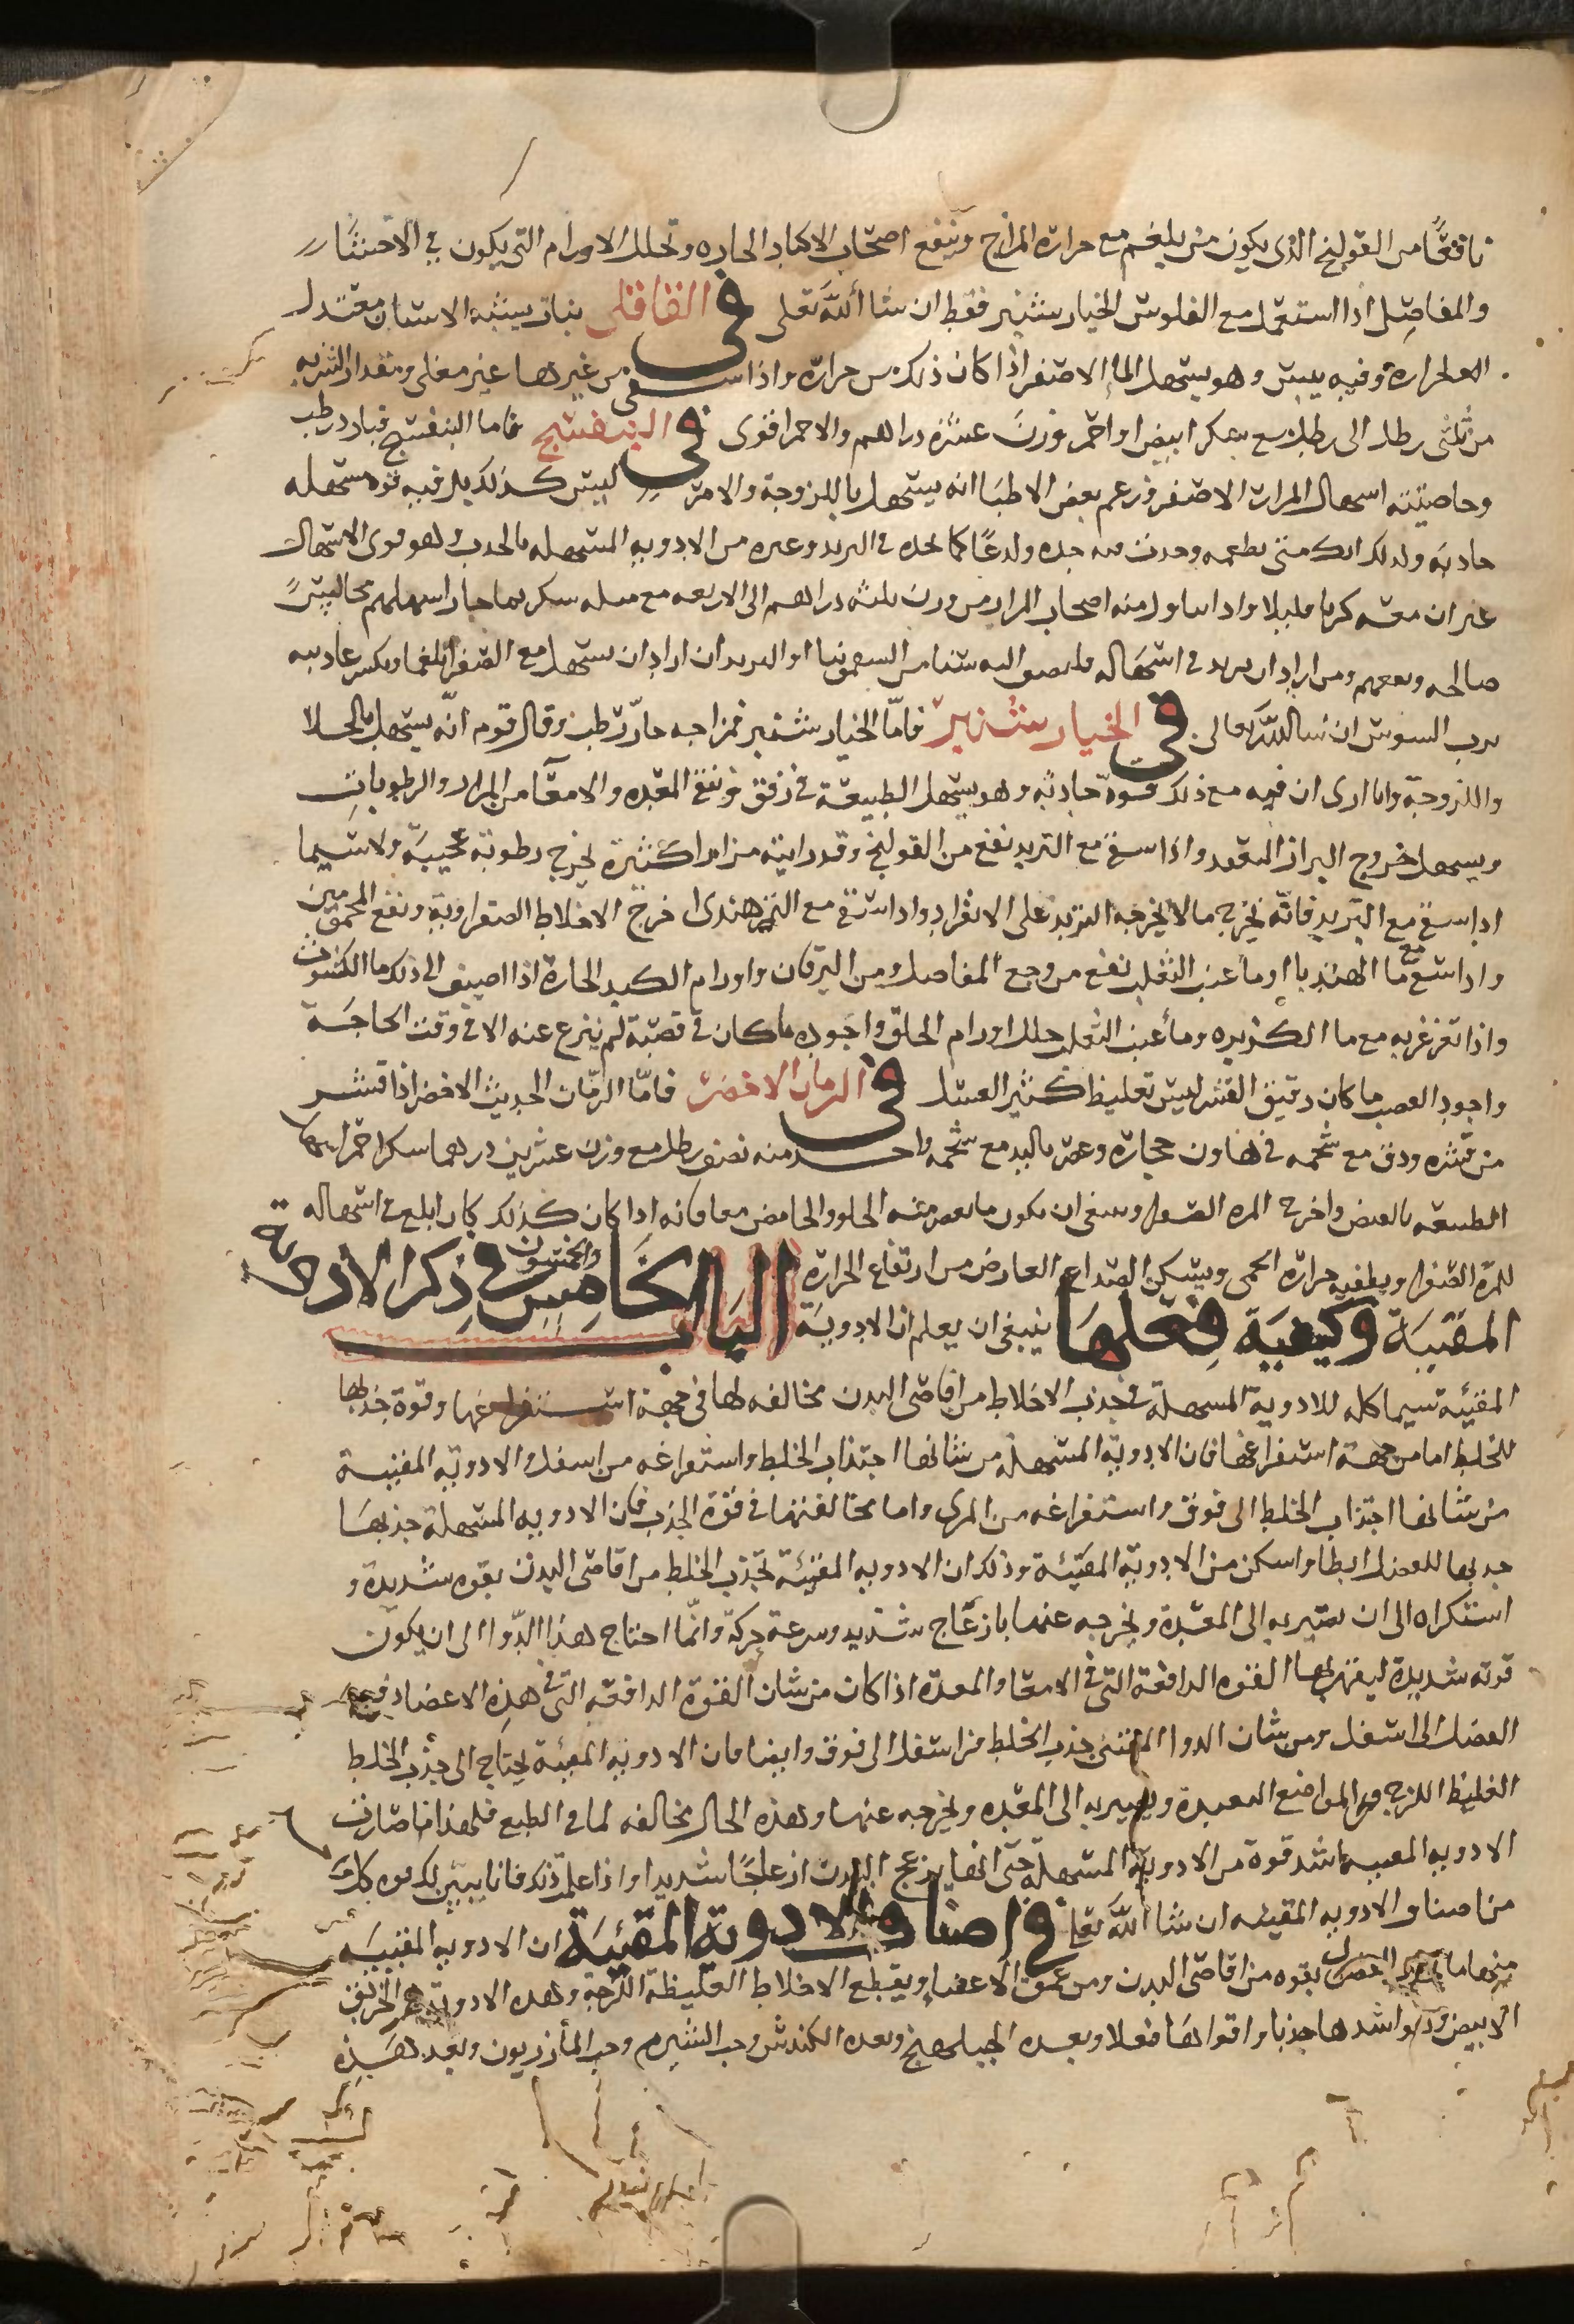 نافعًا من القولنج الذى يكون من بلغم مع حرارة المزاج وينفع اصحاب الاكباد الحاره وتحلل الاورام التى يكون فى الاحشا
والمفاصل اذا استعمل مع الفلوس الخيار شنبر فقط ان شا الله تعلى فى القاقلى نبات يشبه الاشنان معتدل
الحرارة وفيه يبس وهو يسهل الما الاصفر اذا كان ذلك من حرارة واذا سقى من غيرها غير مغلى ومقدار الشربه
من ثلثى رطل الى رطل مع سكر ابيض او احمر وزن عشرة دراهم والاحمر اقوى فى البنفسج فاما البنفسج فبارد رطب
وخاصيته اسهال المرار الاصفر وزعم بعض الاطبا انه يسهل باللزوجة والامر ليس كذلك بل فيه قوه مسهله
حاده ولذلك انك متى تطعمه وجدت منه حده ولذعًا كما تجده فى التربد وغيره من الادويه المسهله بالجذب وهو قوى الاسهال
غير ان معه كربا قليلا واذا تناول منه اصحاب المرار من وزن ثلثه دراهم الى الاربعه مع مثله سكر بما حار اسهلهم مجالسً
صالحه ونفعهم ومن اراد ان يزيد فى اسهاله فليضف اليه شيا من السقمونيا او التربد ان اراد ان يسهل مع الصفرا بلغما ويكسر عاديته
برب السوس ان شا الله تعالى فى الخيار شنبر فامّا الخيار شنبر فمزاجه حارّ رطب وقال قوم انّه يسهل بالجلا
واللزوجة وانا ارى ان فيه مع ذلك قوة جاذبه وهو يسهل الطبيعة فى رفق وينقى المعده والامعا من المرار والرطوبات
ويسهل خروج البراز المنعقد واذا سقى مع التربد نفع من القولنج وقد رايته مرارا كثيرة يخرج رطوبة عجيبة ولا سيما
اذا سقى مع التربد فانّه يخرج ما لا يخرجه التربد على الانفراد واذا سقى مع التمر هندى اخرج الاخلاط الصفراوية ونفع المحمومين
واذا سقى مع ما الهندبا او ما عنب الثعلب نفع من وجع المفاصل ومن اليرقان واورام الكبد الحارة اذا اضيف الى ذلك ما الكشوث
واذا تغرغر به مع ما الكزبره وما عنب الثعلب حلل اورام الحلق واجوده ما كان فى قصبة لم ينزع عنه الا فى وقت الحاجة
واجود القصب ما كان رقيق القشر ليس بغليظ كثير العسل فى الرمان الاخضر فامّا الرمّان الحديث الاخضر اذا قشر
من قشره ودق مع شحمه فى هاون حجارة وعصر باليد مع شحمه واخذ منه نصف رطل مع وزن عشرين درهما سكرا احمر اسهل
الطبيعه بالعصر واخرج المره الصفرا وينبغى ان يكون ما يعصر منه الحلو والحامض معا فانه اذا كان كذلك كان ابلغ فى اسهاله
للمرّة الصفرا ويطفى حرارة الحمى ويسكن الصداع العارض من ارتفاع الحرارة الباب الخامس والخمسون فى ذكر الادوية
المقيية وكيفية فعلها ينبغى ان يعلم ان الادوية
المقيئه مشاكله للادوية المسهلة فى جذب الاخلاط من اقاصى البدن مخالفه لها فى جهة استفراغها وقوة جذبها
للخلط اما من جهة استفراغها فان الادوية المسهلة من شانها اجتذاب الخلط واستفراغه من اسفل والادوية المقيية
من شانها اجتذاب الخلط الى فوق واستفراغه من المرى واما مخالفتها فى قوة الجذب فان الادويه المسهلة جذبها
للفضل ابطا واسكن من الادوية المقيئة وذلك ان الادويه المقيئة تجذب الخلط من اقاصى البدن بقوه شديدة و
استكراه الى ان تصير به الى المعدة وتخرجه عنها بازعاج شديد وسرعة حركة وانّما احتاج هذا الدّوا الى ان يكون
قوته شديدة ليقهر بها القوه الدافعة التى فى الامعا والمعدة اذا كان من شان القوة الدافعه التى فى هذه الاعضا دفع
الفضل الى اسفل ومن شان الدوا المقيى جذب الخلط من اسفل الى فوق وايضا فان الادويه المقيئة تحتاج الى جذب الخلط
الغليظ اللزج من المواضع البعيدة وتصير به الى المعده وتخرجه عنها وهذه الحال مخالفه لما فى الطبع فلهذا ما صارت
الادويه المقييه اشد قوة من الادوية المسهلة حتى انها تزعج البدن ازعاجًا شديدا واذ اعلم ذلك فانا نبين لك قوه كل
من اصناف الادويه المقيئه ان شا الله تعلى فى اصناف الادوية المقيئة ان الادويه المقييه
منها ما بقوه من اقاصى البدن ومن عمق الاعضا ويقطع الاخلاط الغليظة اللزجة وهذه الادوية هى الخربق
الابيض وهو اشدها جذبا واقواها فعلا وبعده الجبلهنج وبعده الكندش وحب الشبرم وحب المازريون وبعد هذه